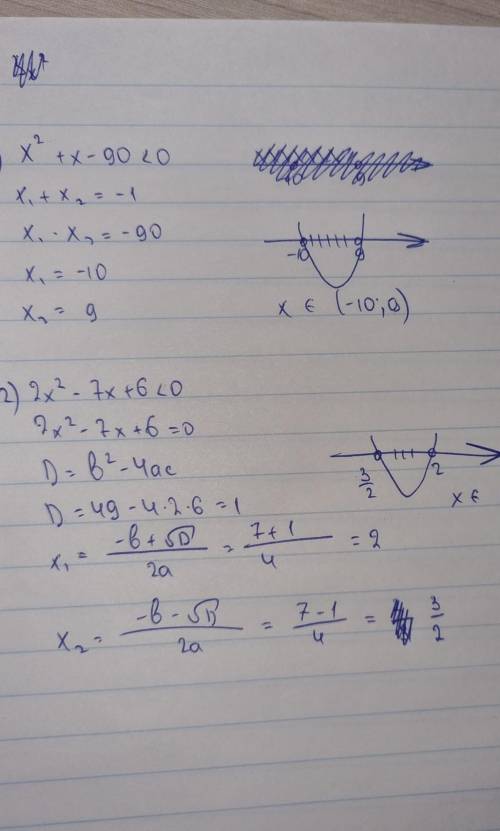 x² + x - 90 < 0
x₁ + x₂ = -1
x₁ · x₂ = -90
x₁ = -10
x₂ = 9
-10 9
x ∈ (-10; 9)
2) 2x² - 7x + 6 < 0
2x² - 7x + 6 = 0
D = в² - 4ас
D = 49 - 4 · 2 · 6 = 1
x₁ = (-в + √D)/2а = (7 + 1)/4 = 2
x₂ = (-в - √D)/2а = (7 - 1)/4 = 3/2
3/2 2
x ∈